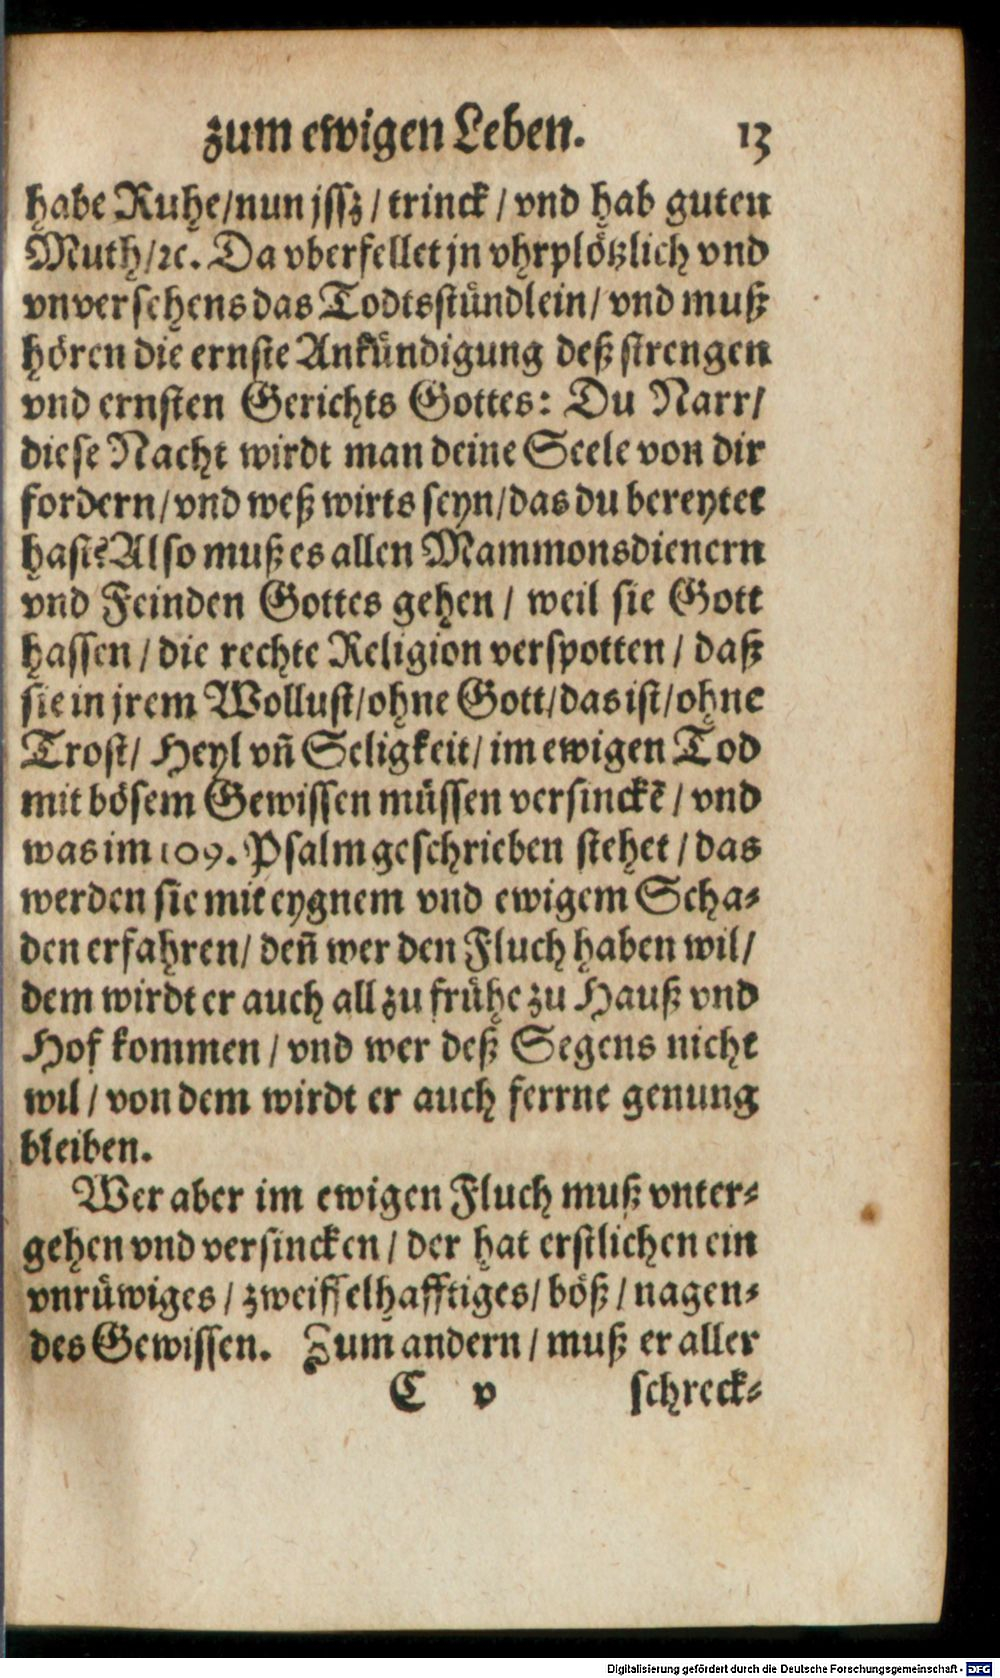 zum ewigen Leben. 13
habe Ruhe/nun jssz/trinck/vnd hab guten
Muth/ꝛc. Da vberfellet jn vhrplötzlich vnd
vnversehens das Todtsstündlein/vnd muß
hören die ernste Ankündigung deß strengen
vnd ernsten Gerichts Gottes: Du Narr/
diese Nacht wirdt man deine Seele von dir
fordern/vnd weß wirts seyn/das du bereytet
hast? Also muß es allen Mammonsdienern
vnd Feinden Gottes gehen/weil sie Gott
hassen/die rechte Religion verspotten/daß
sie in jrem Wollust/ohne Gott/das ist/ohne
Trost/Heyl vñ Seligkeit/im ewigen Tod
mit bösem Gewissen müssen versinckẽ/vnd
was im 109. Psalm geschrieben stehet/das
werden sie mit eygnem vnd ewigem Scha-
den erfahren/deñ wer den Fluch haben wil/
dem wirdt er auch all zu frühe zu Hauß vnd
Hof kommen/vnd wer deß Segens nicht
wil/von dem wirdt er auch ferrne genung
bleiben.
Wer aber im ewigen Fluch muß vnter-
gehen vnd versincken/der hat erstlichen ein
vnrüwiges/zweiffelhafftiges/böß/nagen-
des Gewissen. Zum andern/muß er aller
C v schreck-
Digitalisierung gefördert durch die Deutsche Forschungsgemeinschaft - DFG